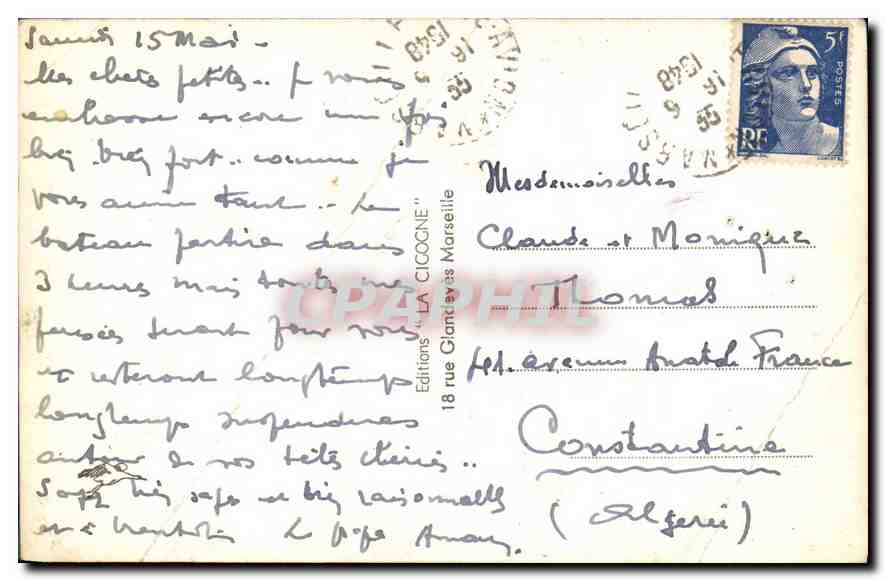 Samedi 15 Mai -
Mes chères petites.. Je vous
embrasse encore une fois
bien bien fort.. comme je
vous aime tant.. Le
bateau partira dans
3 heures mais toutes mes
pensées seront pour vous
et resteront longtemps
longtemps suspendues
autour de vos têtes chéries..
Soyez très sages et bien raisonnables
et à bientôt. Le
Editions "LA CIGOGNE"
18 rue Glandevès Marseille
CPAPHIL
5f
POSTES
RF
Mesdemoiselles
Claude et Monique
Thomas
avenue Anatole France
Constantine
(Algérie)